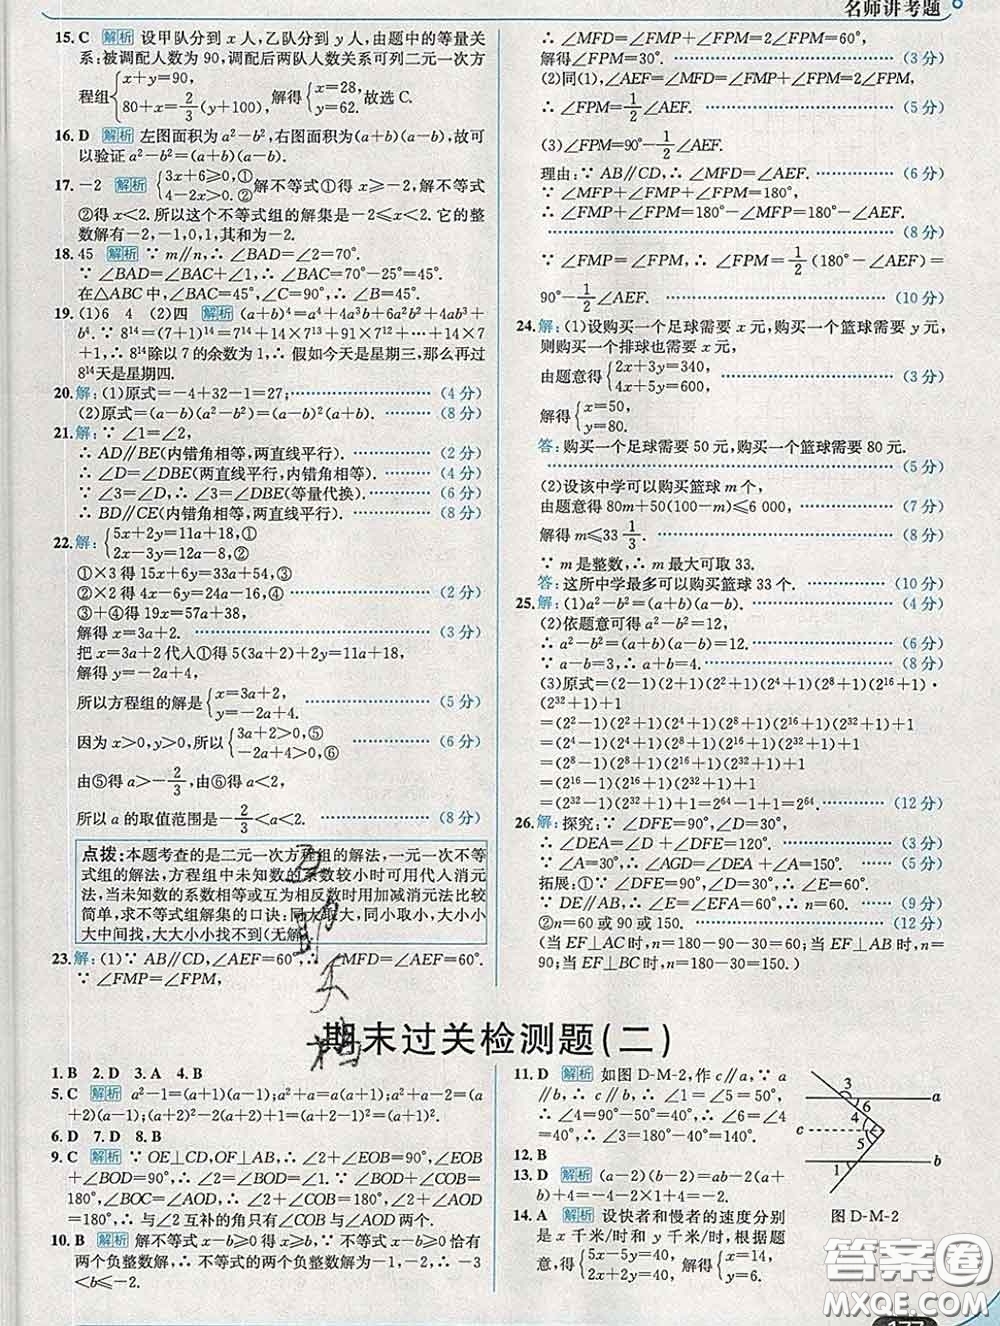 名师讲考题
15. C 解析 设甲队分到 x 人,乙队分到 y 人,由题中的等量关
系:被调配人数为 90,调配后两队人数关系可列二元一次方
程组{x+y=90, 80+x=2/3(y+100), 解得{x=28, y=62. 故选 C.
16. D 解析 左图面积为 a²-b²,右图面积为(a+b)(a-b),故可
以验证 a²-b²=(a+b)(a-b).
17. -2 解析 {3x+6≥0,① 4-2x>0.② 解不等式①得 x≥-2,解不等式
②得 x<2. 所以这个不等式组的解集是-2≤x<2. 它的整
数解有-2,-1,0,1,其和为-2.
18. 45 解析 ∵ m∥n,∴ ∠BAD=∠2=70°.
∵ ∠BAD=∠BAC+∠1,∴ ∠BAC=∠BAD-∠1=45°.
在△ABC 中,∠BAC=45°,∠C=90°,∴ ∠B=45°.
19. (1)6 4 (2)四 解析 (a+b)⁴=a⁴+4a³b+6a²b²+4ab³+
b⁴. ∵ 8¹⁴=(7+1)¹⁴=7¹⁴+14×7¹³+91×7¹²+…+14×7
+1,∴ 8¹⁴除以 7 的余数为 1,∴ 假如今天是星期三,那么再过
8¹⁴天是星期四.
20. 解:(1)原式=-4+32-1=27;………(4 分)
(2)原式=(a-b)(a²-b²)=(a-b)²(a+b).………(8 分)
21. 解:∵ ∠1=∠2,
∴ AD∥BE(内错角相等,两直线平行).………(2 分)
∴ ∠D=∠DBE(两直线平行,内错角相等).………(4 分)
∵ ∠3=∠D,∴ ∠3=∠DBE(等量代换).………(6 分)
∴ BD∥CE(内错角相等,两直线平行).………(8 分)
22. 解:{5x+2y=11a+18,① 2x-3y=12a-8,②
①×3 得 15x+6y=33a+54,③
②×2 得 4x-6y=24a-16,④………(2 分)
③+④得 19x=57a+38,
解得 x=3a+2.………(3 分)
把 x=3a+2 代入①得 5(3a+2)+2y=11a+18,
解得 y=-2a+4,
所以方程组的解是{x=3a+2, y=-2a+4.………(5 分)
因为 x>0,y>0,所以{3a+2>0,⑤ -2a+4>0,⑥………(6 分)
由⑤得 a>-2/3,由⑥得 a<2,
所以 a 的取值范围是-2/3<a<2.………(8 分)
点拨:本题考查的是二元一次方程组的解法,一元一次不等
式组的解法,方程组中未知数的系数较小时可用代入消元
法,当未知数的系数相等或互为相反数时用加减消元法比较
简单,求不等式组解集的口诀:同大取大,同小取小,大小小
大中间找,大大小小找不到(无解
23. 解:(1)∵ AB∥CD,∠AEF=60°,∴ ∠MFD=∠AEF=60°.
∵ ∠FMP=∠FPM,
∴ ∠MFD=∠FMP+∠FPM=2∠FPM=60°,
解得∠FPM=30°.………(3 分)
(2)同(1),∠AEF=∠MFD=∠FMP+∠FPM=2∠FPM,
∴ ∠FPM=1/2∠AEF.………(5 分)
(3)∠FPM=90°-1/2∠AEF.
理由:∵ AB∥CD,∴ ∠MFD=∠AEF.………(6 分)
∵ ∠MFP+∠FMP+∠FPM=180°,
∴ ∠FMP+∠FPM=180°-∠MFP=180°-∠AEF.
………(8 分)
∵ ∠FMP=∠FPM,∴ ∠FPM=1/2(180°-∠AEF)=
90°-1/2∠AEF.………(10 分)
24. 解:(1)设购买一个足球需要 x 元,购买一个篮球需要 y 元,
则购买一个排球也需要 x 元,
由题意得{2x+3y=340, 4x+5y=600,………(3 分)
解得{x=50, y=80.
答:购买一个足球需要 50 元,购买一个篮球需要 80 元.
………(5 分)
(2)设该中学可以购买篮球 m 个,
由题意得 80m+50(100-m)≤6 000,………(7 分)
解得 m≤33 1/3.………(8 分)
∵ m 是整数,∴ m 最大可取 33.
答:这所中学最多可以购买篮球 33 个.………(10 分)
25. 解:(1)a²-b²=(a+b)(a-b).………(4 分)
(2)依题意可得 a²-b²=12,
∴ a²-b²=(a+b)(a-b)=12.………(6 分)
∵ a-b=3,∴ a+b=4.………(8 分)
(3)原式=(2-1)(2+1)(2²+1)(2⁴+1)(2⁸+1)(2¹⁶+1)·
(2³²+1)+1
=(2²-1)(2²+1)(2⁴+1)(2⁸+1)(2¹⁶+1)(2³²+1)+1
=(2⁴-1)(2⁴+1)(2⁸+1)(2¹⁶+1)(2³²+1)+1
=(2⁸-1)(2⁸+1)(2¹⁶+1)(2³²+1)+1
=(2¹⁶-1)(2¹⁶+1)(2³²+1)+1
=(2³²-1)(2³²+1)+1=2⁶⁴-1+1=2⁶⁴.………(12 分)
26. 解:探究:∵ ∠DFE=90°,∠D=30°,
∴ ∠DEA=∠D+∠DFE=120°.………(2 分)
∵ ∠A=30°,∴ ∠AGD=∠DEA+∠A=150°.………(5 分)
拓展:①∵ ∠DFE=90°,∠D=30°,∴ ∠E=60°.
∵ DE∥AB,∴ ∠E=∠EFA=60°,∴ n=60.………(9 分)
②n=60 或 90 或 150.………(12 分)
(当 EF⊥AC 时,n=180-90-30=60;当 EF⊥AB 时,n=
90;当 EF⊥BC 时,n=180-30=150.)
期末过关检测题(二)
1. B 2. D 3. A 4. B
5. C 解析 a²-1=(a+1)(a-1);a²+a=a(a+1);a²+a-2=(a
+2)(a-1);(a+2)²-2(a+2)+1=(a+2-1)²=(a+1)².
6. D 7. D 8. B
9. C 解析 ∵ OE⊥CD,OF⊥AB,∴ ∠2+∠EOB=90°,∠EOB
+∠BOD=90°,∴ ∠2=∠BOD. ∵ ∠BOD+∠BOC=
180°,∠BOC=∠AOD,∴ ∠2+∠COB=180°,∠2+∠AOD=
180°,∴ 与∠2 互补的角只有∠COB 与∠AOD 两个.
10. B 解析 解不等式 x-b≥0 得 x≥b,∵ 不等式 x-b≥0 恰有
两个负整数解,∴ 不等式的两个负整数解为-1,-2,∴ -3
<b≤-2.
11. D 解析 如图 D-M-2,作 c∥a,∵
a∥b,∴ c∥b,∴ ∠1=∠5=50°,
∴ ∠4=90°-50°=40°,∴ ∠6=∠4
=40°,∴ ∠3=180°-∠6=140°.
12. B
13. D 解析 (a-2)(b-2)=ab-2(a
+b)+4=-4-2×1+4=-2.
14. A 解析 设快者和慢者的速度分别
是 x 千米/时和 y 千米/时,根据题
意,得{5x-5y=40, 2x+2y=40, 解得{x=14, y=6.
3
a
6
4
c
5
1
b
图 D-M-2
答案圈
MXQE.COM
177